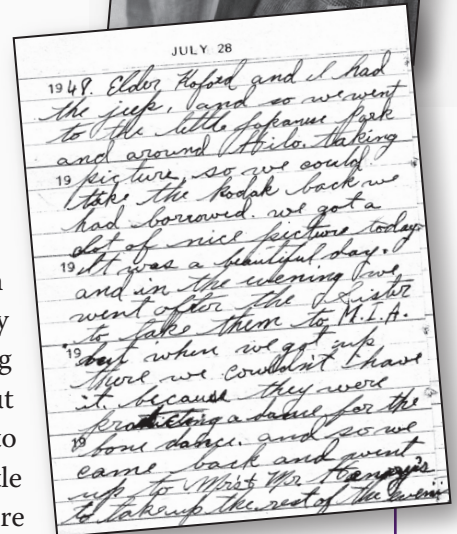 JULY 28
1948. Elder Hoford and I had
the jeep, and so we went
to the little Japanese Park
and around Hilo. taking
19 picture, so we could
take the kodak back we
had borrowed. we got a
alot of nice picture today.
19 It was a beautiful day.
and in the evening we
went after the Sister
to take them to M.I.A.
19 but when we got up
there we couldn't have
it. because they were
a dance for the
19 bone dance. and so we
came back and went
up to Mrs & Mr
to take up the rest of the
y
g
ut
to
tle
re